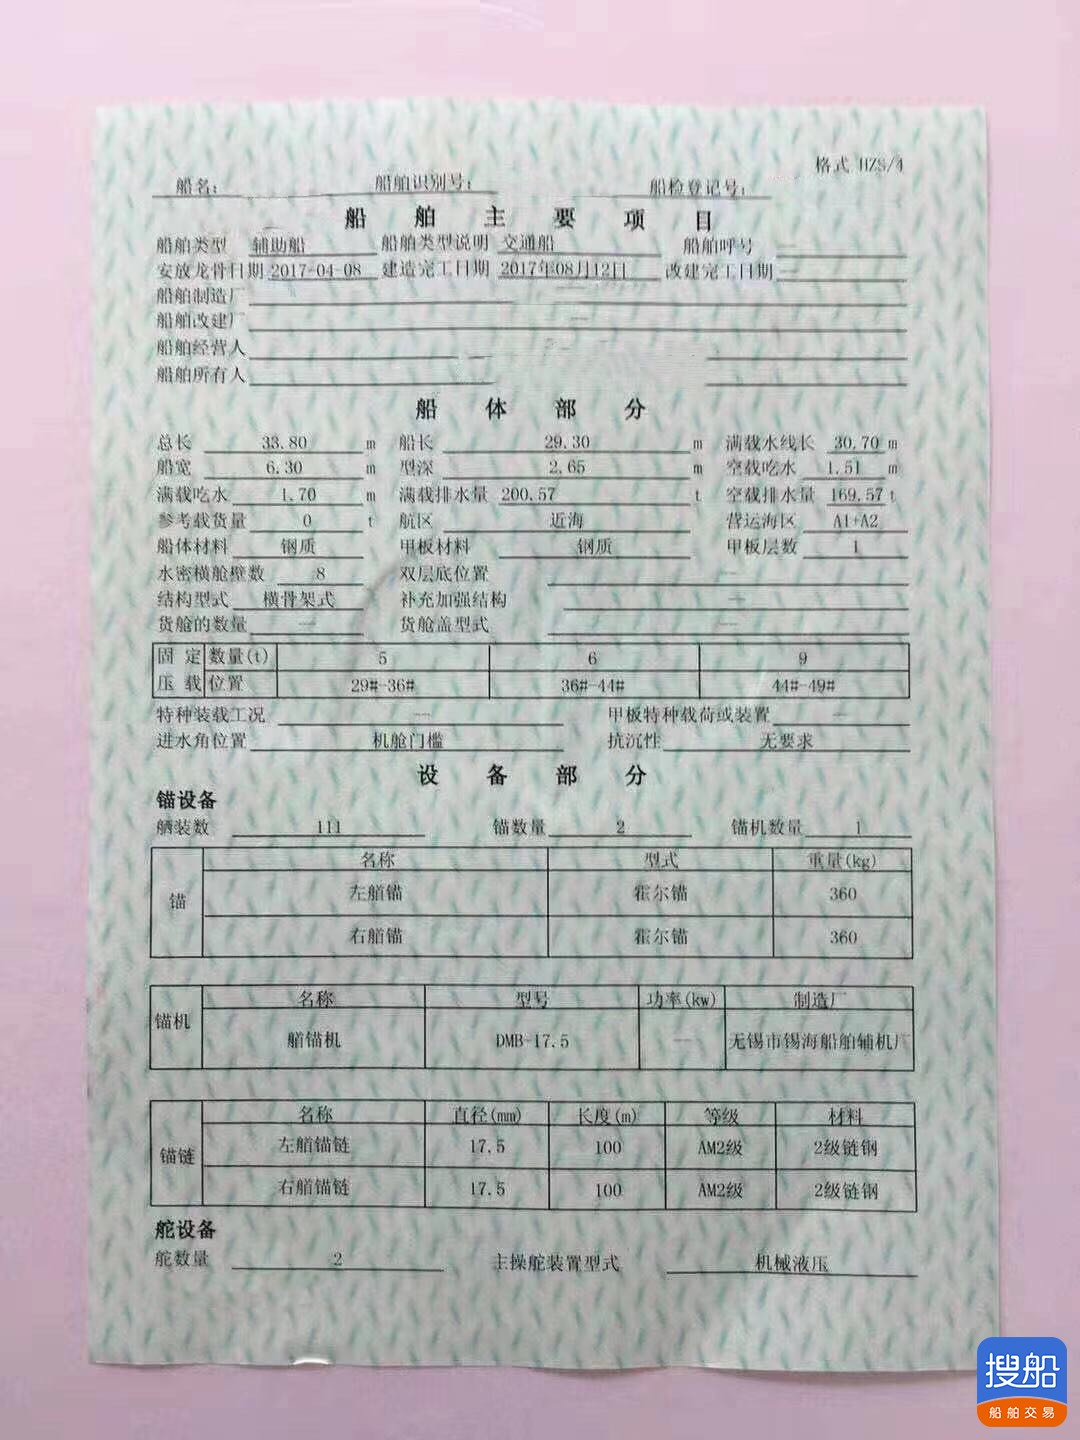 格式 HZS/4
船名： 船舶识别号： 船检登记号：
船舶主要项目
船舶类型 辅助船 船舶类型说明 交通船 船舶呼号
安放龙骨日期 2017-04-08 建造完工日期 2017年08月12日 改建完工日期
船舶制造厂
船舶改建厂 —
船舶经营人
船舶所有人
船体部分
总长 33.80 m 船长 29.30 m 满载水线长 30.70 m
船宽 6.30 m 型深 2.65 m 空载吃水 1.51 m
满载吃水 1.70 m 满载排水量 200.57 t 空载排水量 169.57 t
参考载货量 0 t 航区 近海 营运海区 A1+A2
船体材料 钢质 甲板材料 钢质 甲板层数 1
水密横舱壁数 8 双层底位置 —
结构型式 横骨架式 补充加强结构 —
货舱的数量 — 货舱盖型式 —
固定 数量(t) 5 6 9
压载 位置 29#-36# 36#-44# 44#-49#
特种装载工况 — 甲板特种载荷或装置 —
进水角位置 机舱门槛 抗沉性 无要求
设备部分
锚设备
舾装数 111 锚数量 2 锚机数量 1
锚 名称 型式 重量(kg)
左艏锚 霍尔锚 360
右艏锚 霍尔锚 360
锚机 名称 型号 功率(kw) 制造厂
艏锚机 DMB-17.5 — 无锡市锡海船舶辅机厂
锚链 名称 直径(mm) 长度(m) 等级 材料
左艏锚链 17.5 100 AM2级 2级链钢
右艏锚链 17.5 100 AM2级 2级链钢
舵设备
舵数量 2 主操舵装置型式 机械液压
搜船
船舶交易